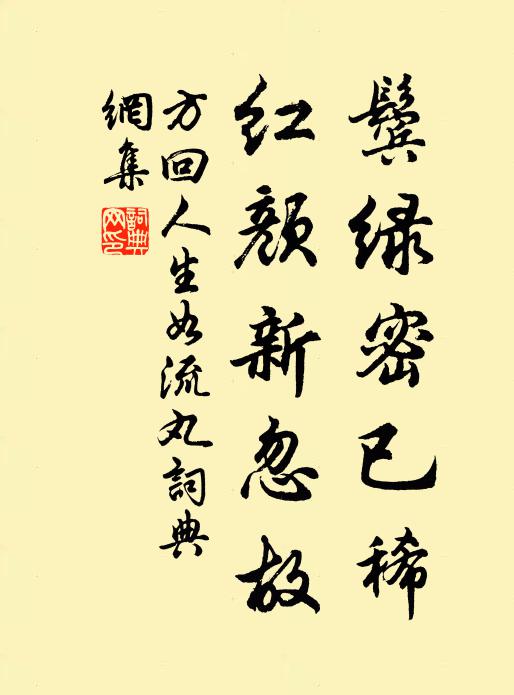 鬓绿密已稀
红颜新忽故
方回人生如流丸詞典
網集
詞典網印